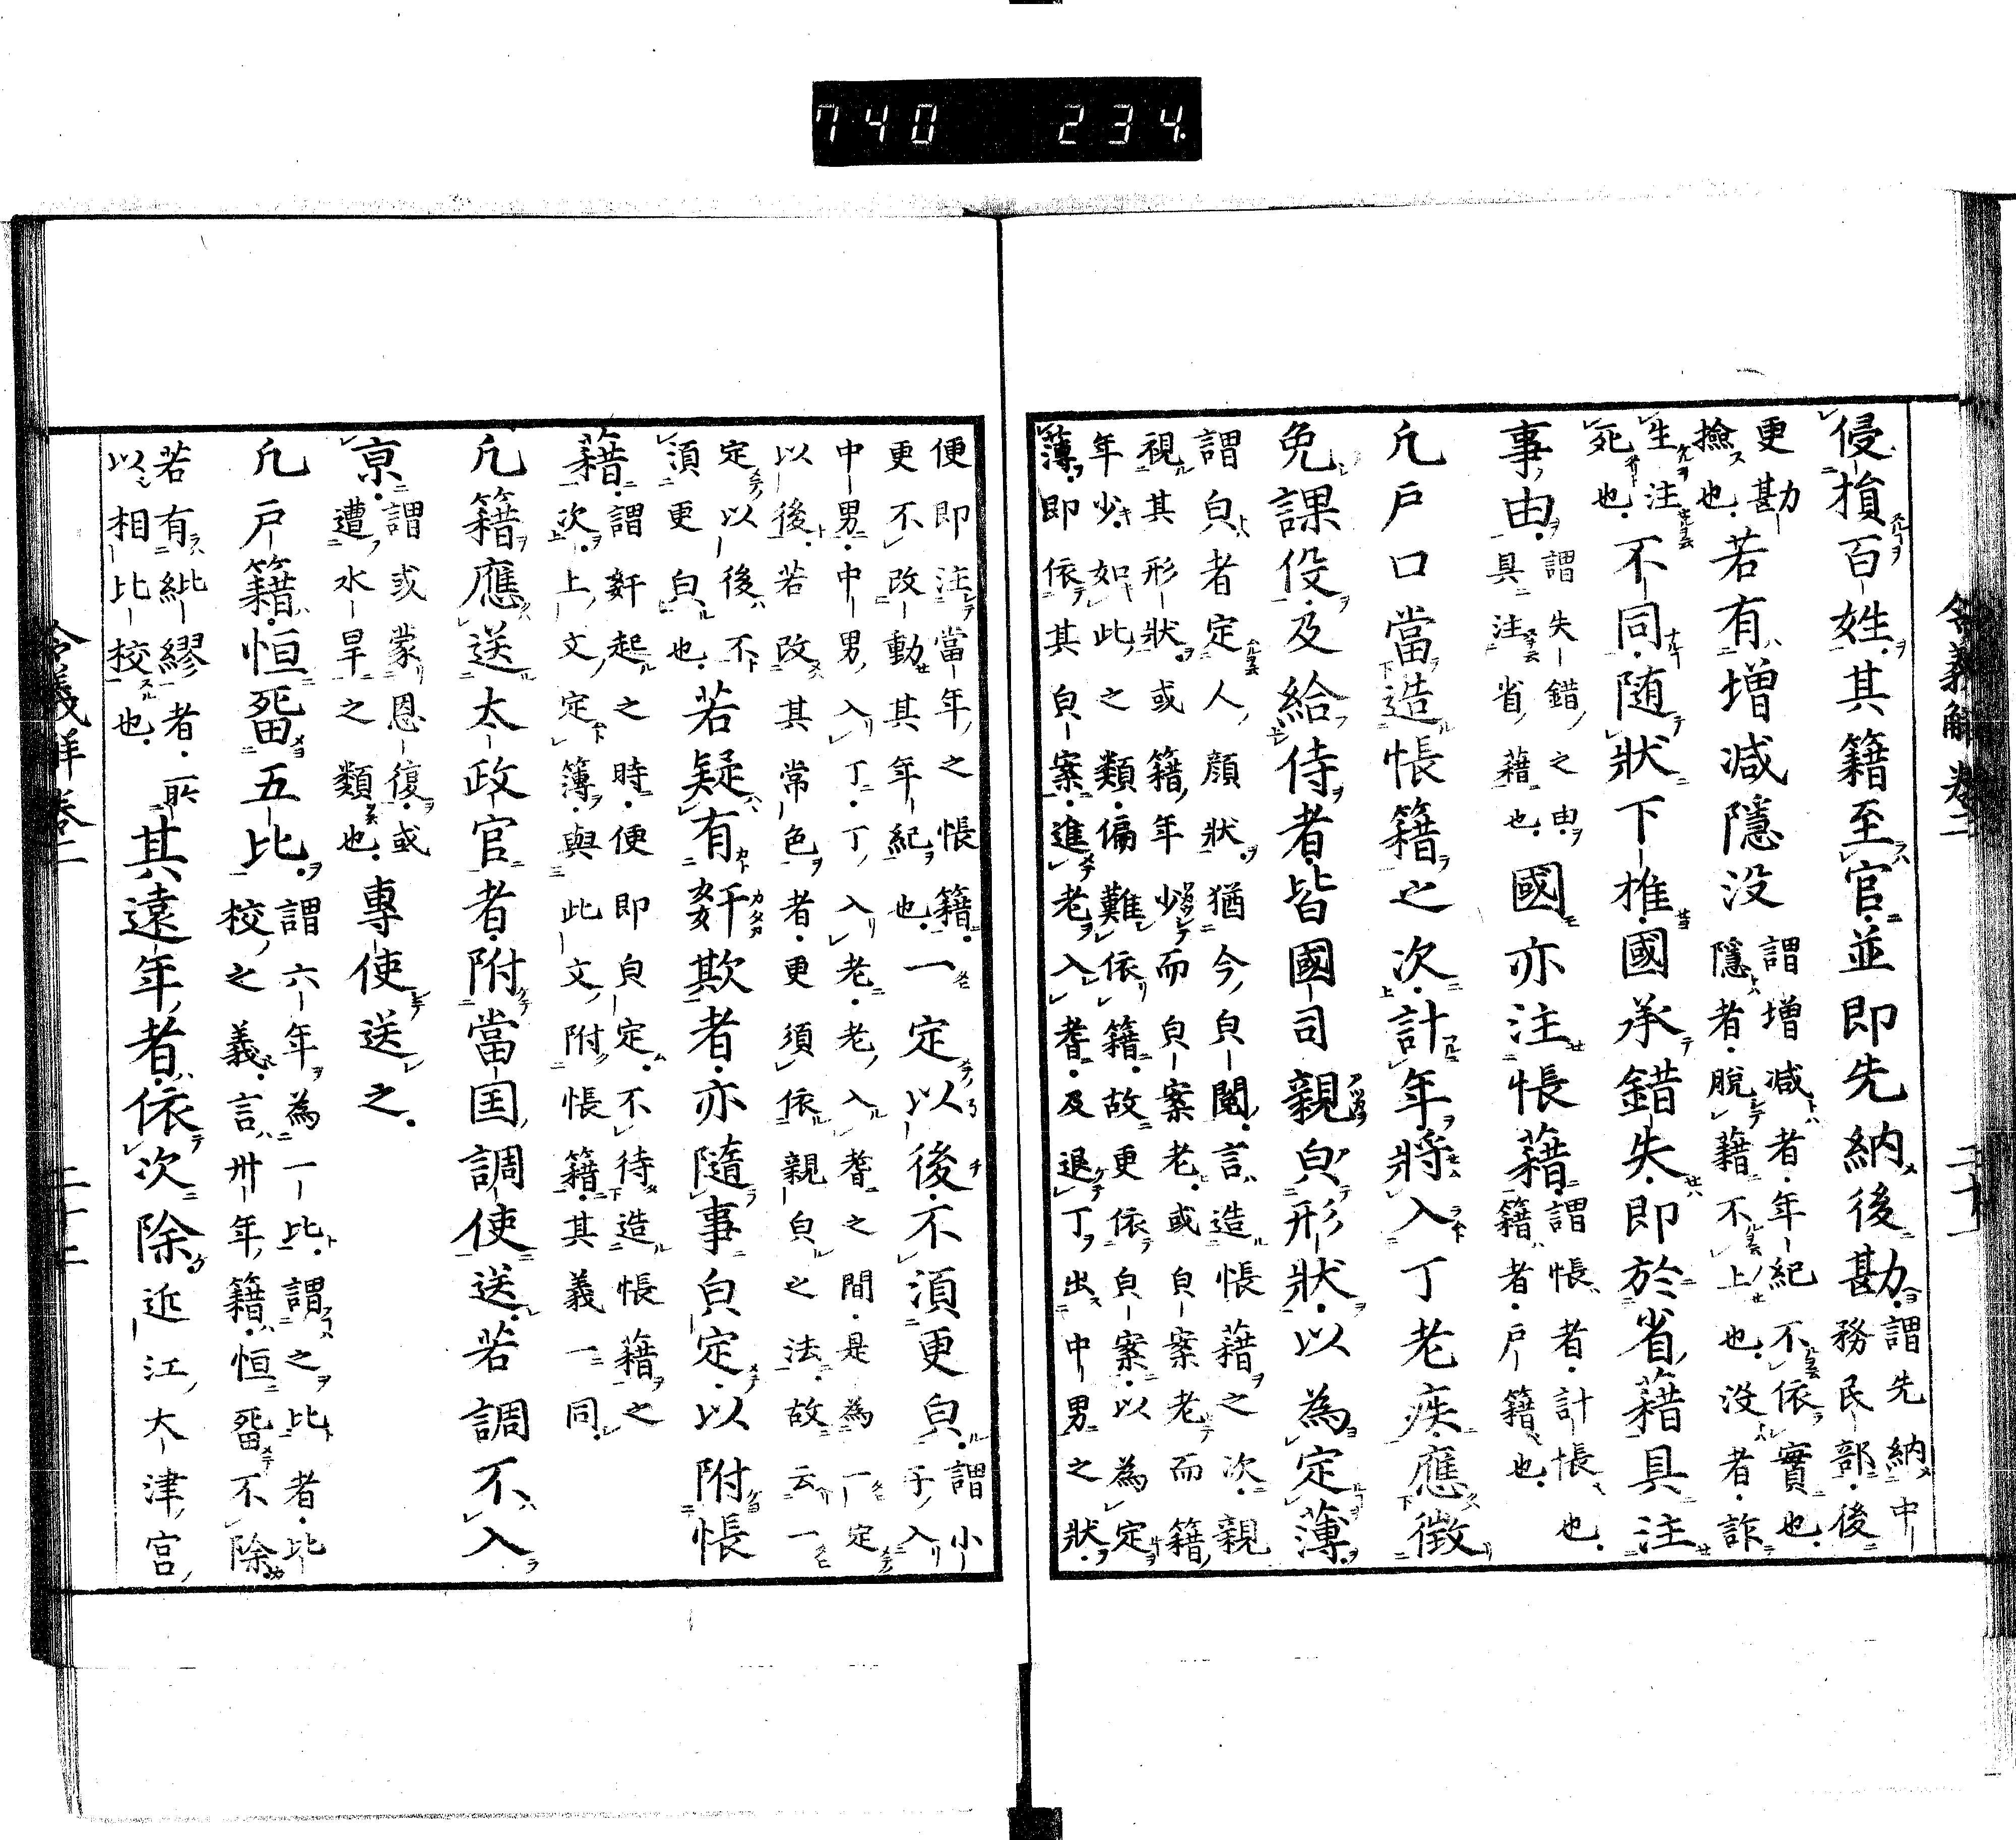 令義解卷二 二十一
侵損百姓其籍至官並即先納後勘
謂先納中
務民部後
更勘
撿也
若有増減隱没
謂増減者年紀不依實也
隱者脫籍不上也没者詐
生注
死也
不同随狀下推國承錯失即於省籍具注
事由
謂失錯之由
具注省籍也
國亦注帳籍
謂帳者計帳也
籍者戸籍也
凢戸口當造帳籍之次計年将入丁老疾應徵
免課役及給侍者皆國司親皃形狀以為定薄
謂皃者定人顔狀猶今皃閲言造帳籍之次親
視其形狀或籍年少而皃案老或皃案老而籍
年少如此之類偏難依籍故更依皃案以為定
薄即依其皃案進老入耆及退丁出中男之狀
便即注當年之帳籍
更不改動其年紀也
一定以後不須更皃
謂小
子入
中男中男入丁丁入老老入耆之間是為一定
以後若改其常色者更須依親皃之法故云一
定以後不
須更皃也
若疑有姧欺者亦隨事皃定以附帳
籍
謂姧起之時便即皃定不待造帳籍之
次上文定簿與此文附帳籍其義一同
凢籍應送太政官者附當国調使送若調不入
亰
謂或蒙恩復或
遭水旱之類也
專使送之
凢戸籍恒畱五比
謂六年為一比謂之比者比
校之義言卅年籍恒畱不除
若有紕繆者所
以相比校也
其遠年者依次除
近江大津宮
令義解卷二 二十二
740 234